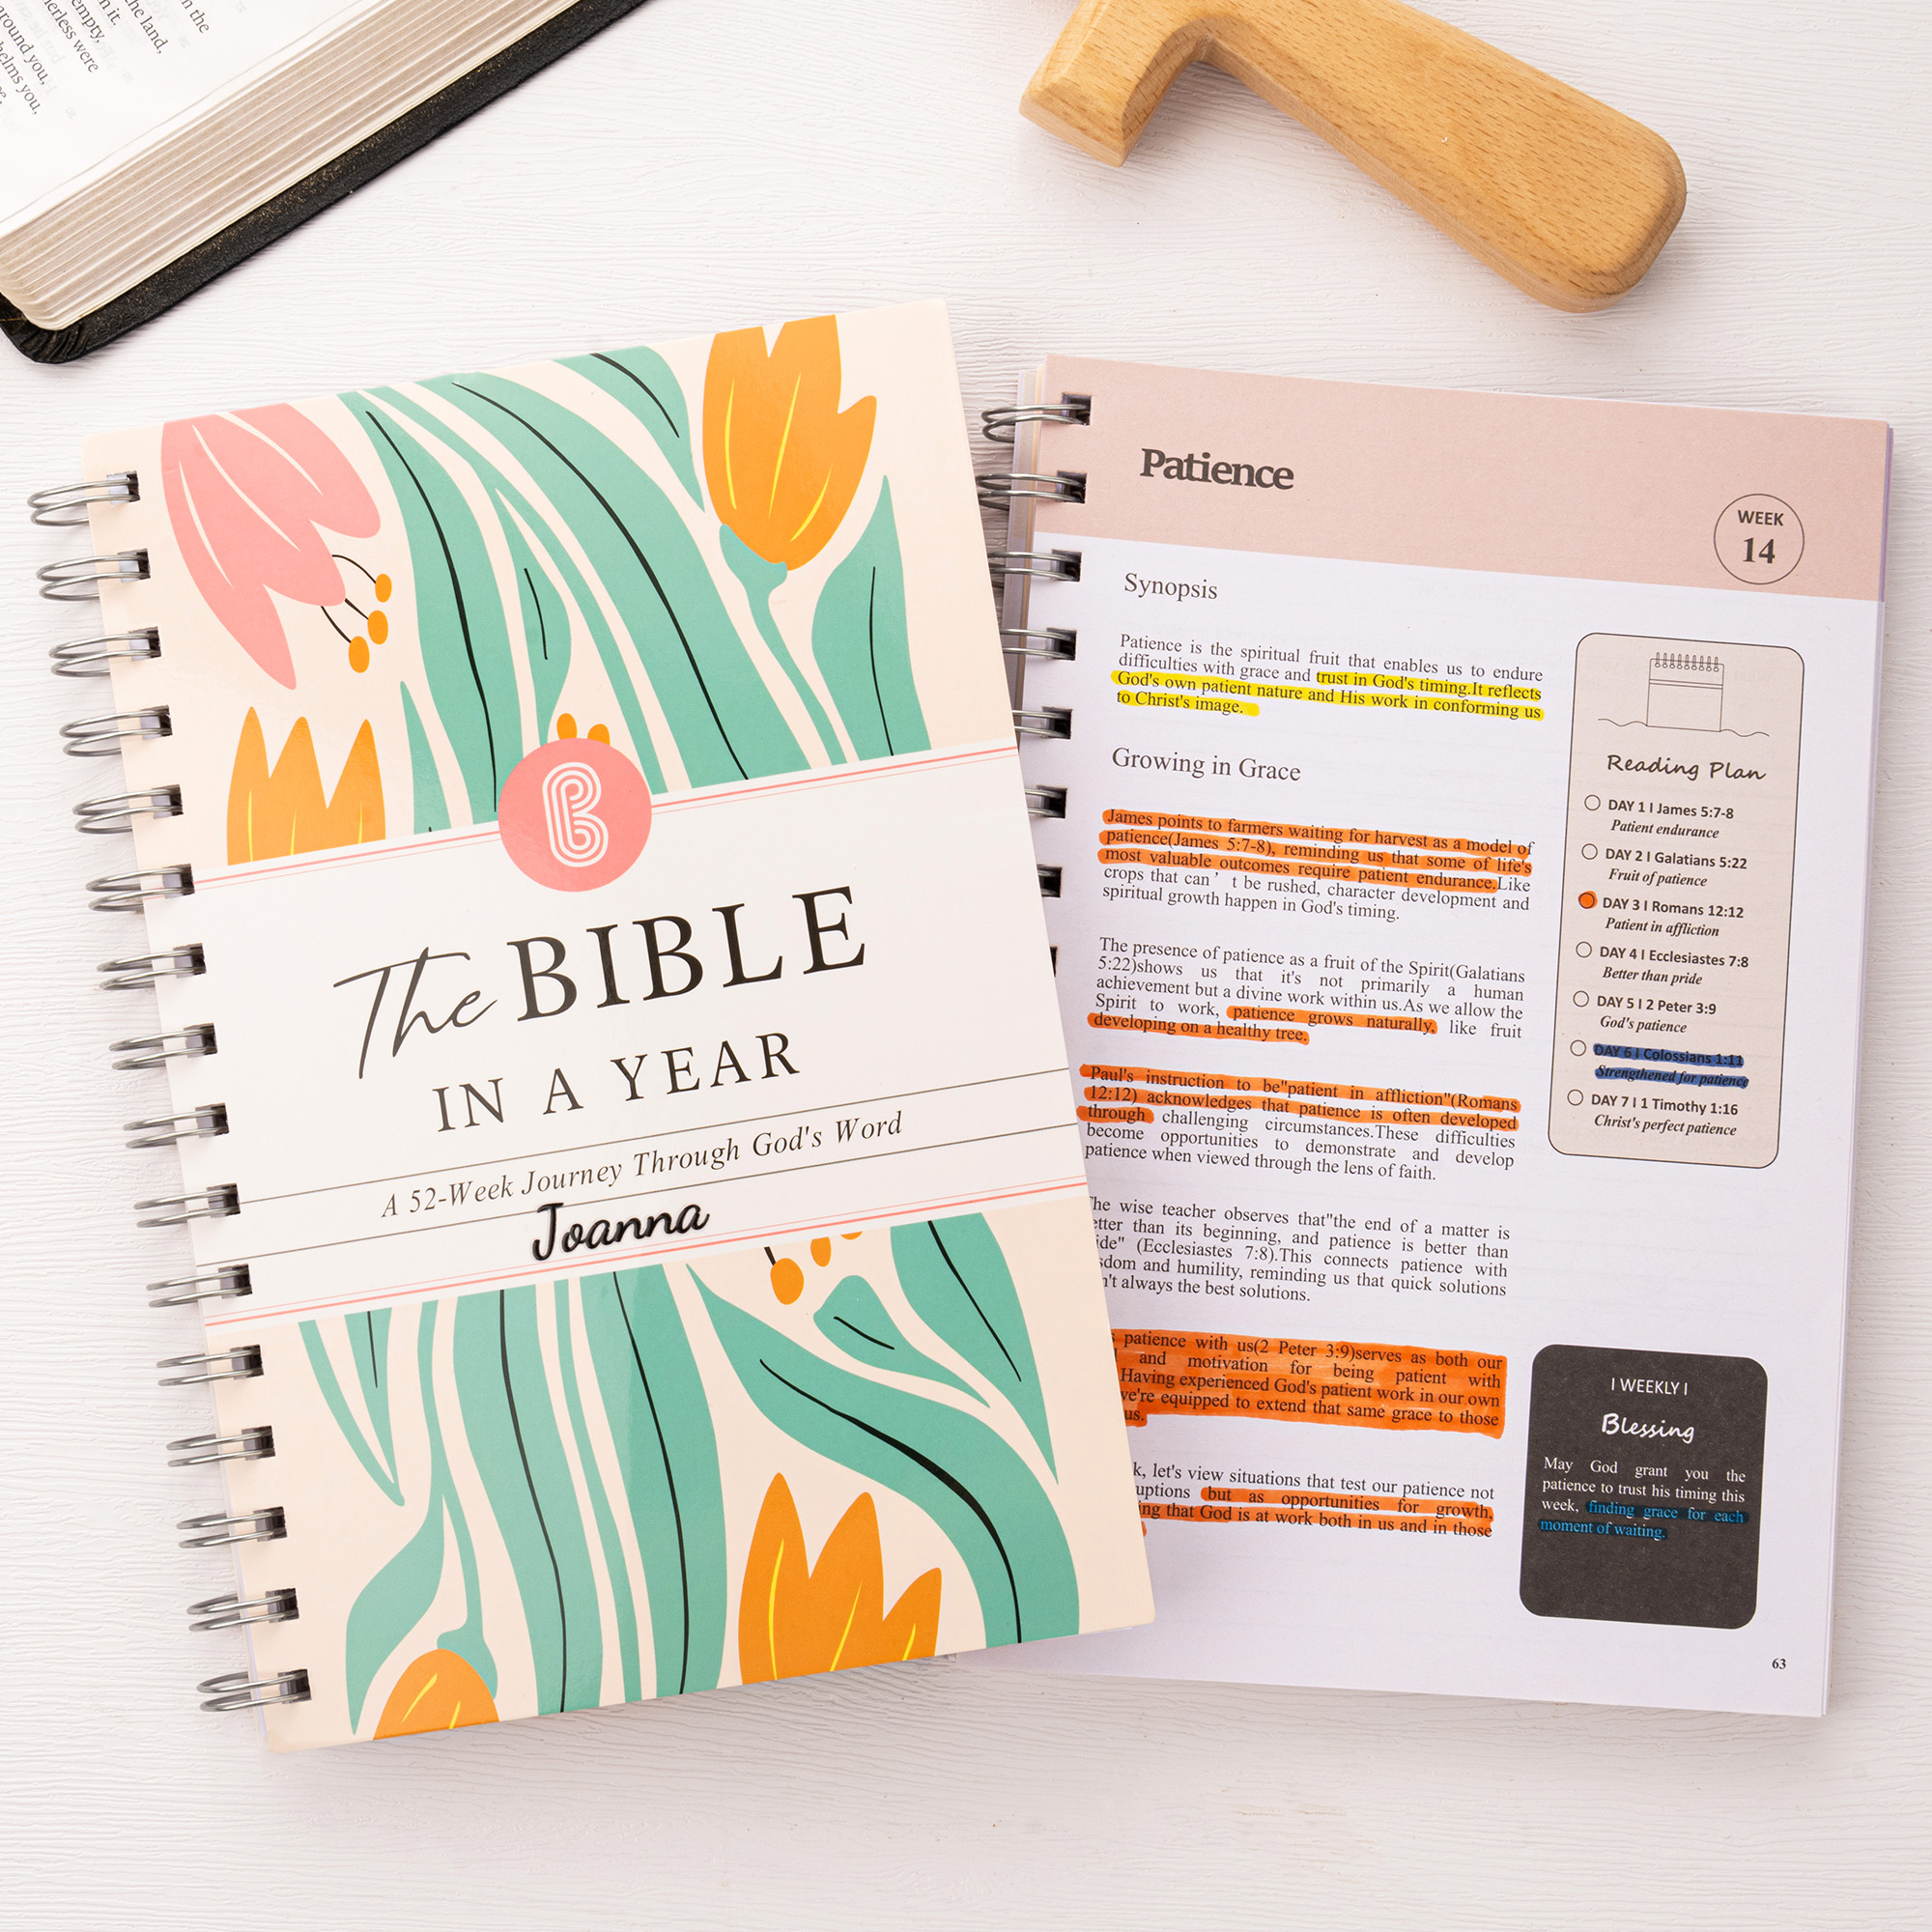 n the
he land,
n it.
empty,
erless were
around you,
helms you,
B
The BIBLE
IN A YEAR
A 52-Week Journey Through God's Word
Joanna
Patience
WEEK
14
Synopsis
Patience is the spiritual fruit that enables us to endure
difficulties with grace and trust in God's timing.It reflects
God's own patient nature and His work in conforming us
to Christ's image.
Growing in Grace
James points to farmers waiting for harvest as a model of
patience(James 5:7-8), reminding us that some of life's
most valuable outcomes require patient endurance.Like
crops that can’t be rushed, character development and
spiritual growth happen in God's timing.
The presence of patience as a fruit of the Spirit(Galatians
5:22)shows us that it's not primarily a human
achievement but a divine work within us.As we allow the
Spirit to work, patience grows naturally, like fruit
developing on a healthy tree.
Paul's instruction to be"patient in affliction"(Romans
12:12) acknowledges that patience is often developed
through challenging circumstances.These difficulties
become opportunities to demonstrate and develop
patience when viewed through the lens of faith.
he wise teacher observes that"the end of a matter is
etter than its beginning, and patience is better than
ide" (Ecclesiastes 7:8).This connects patience with
sdom and humility, reminding us that quick solutions
n't always the best solutions.
s patience with us(2 Peter 3:9)serves as both our
and motivation for being patient with
Having experienced God's patient work in our own
ve're equipped to extend that same grace to those
us.
k, let's view situations that test our patience not
uptions but as opportunities for growth,
ing that God is at work both in us and in those
Reading Plan
DAY 1 I James 5:7-8
Patient endurance
DAY 2 I Galatians 5:22
Fruit of patience
DAY 3 I Romans 12:12
Patient in affliction
DAY 4 I Ecclesiastes 7:8
Better than pride
DAY 5 I 2 Peter 3:9
God's patience
DAY 6 I Colossians 1:11
Strengthened for patience
DAY 7 I 1 Timothy 1:16
Christ's perfect patience
I WEEKLY I
Blessing
May God grant you the
patience to trust his timing this
week, finding grace for each
moment of waiting.
63